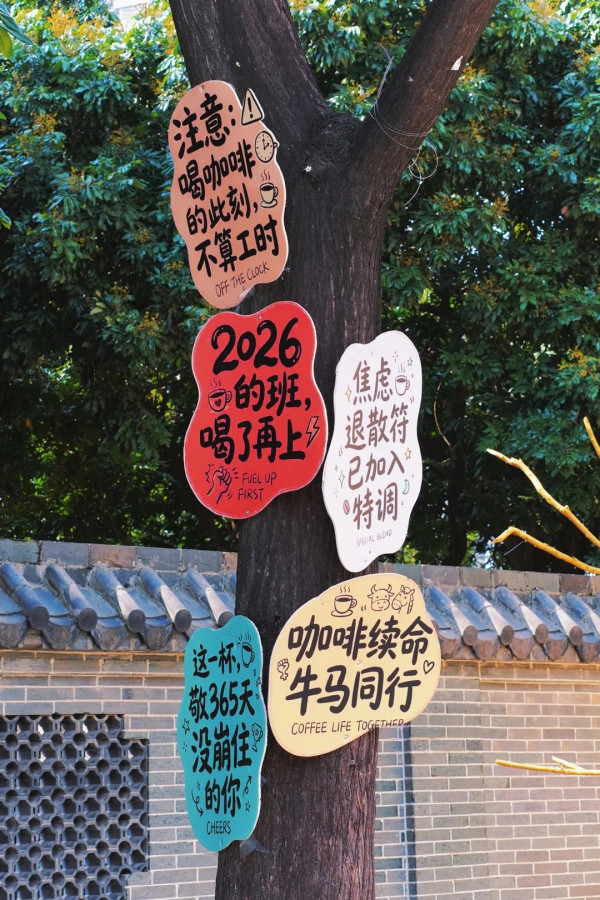 注意:
喝咖啡
的此刻,
不算工时
OFF THE CLOCK
2026
的班,
喝了再上
FUEL UP
FIRST
焦虑
退散符
已加入
特调
SPECIAL BLEND
咖啡续命
牛马同行
COFFEE LIFE TOGETHER
这一杯,
敬365天
没崩住
的你
CHEERS